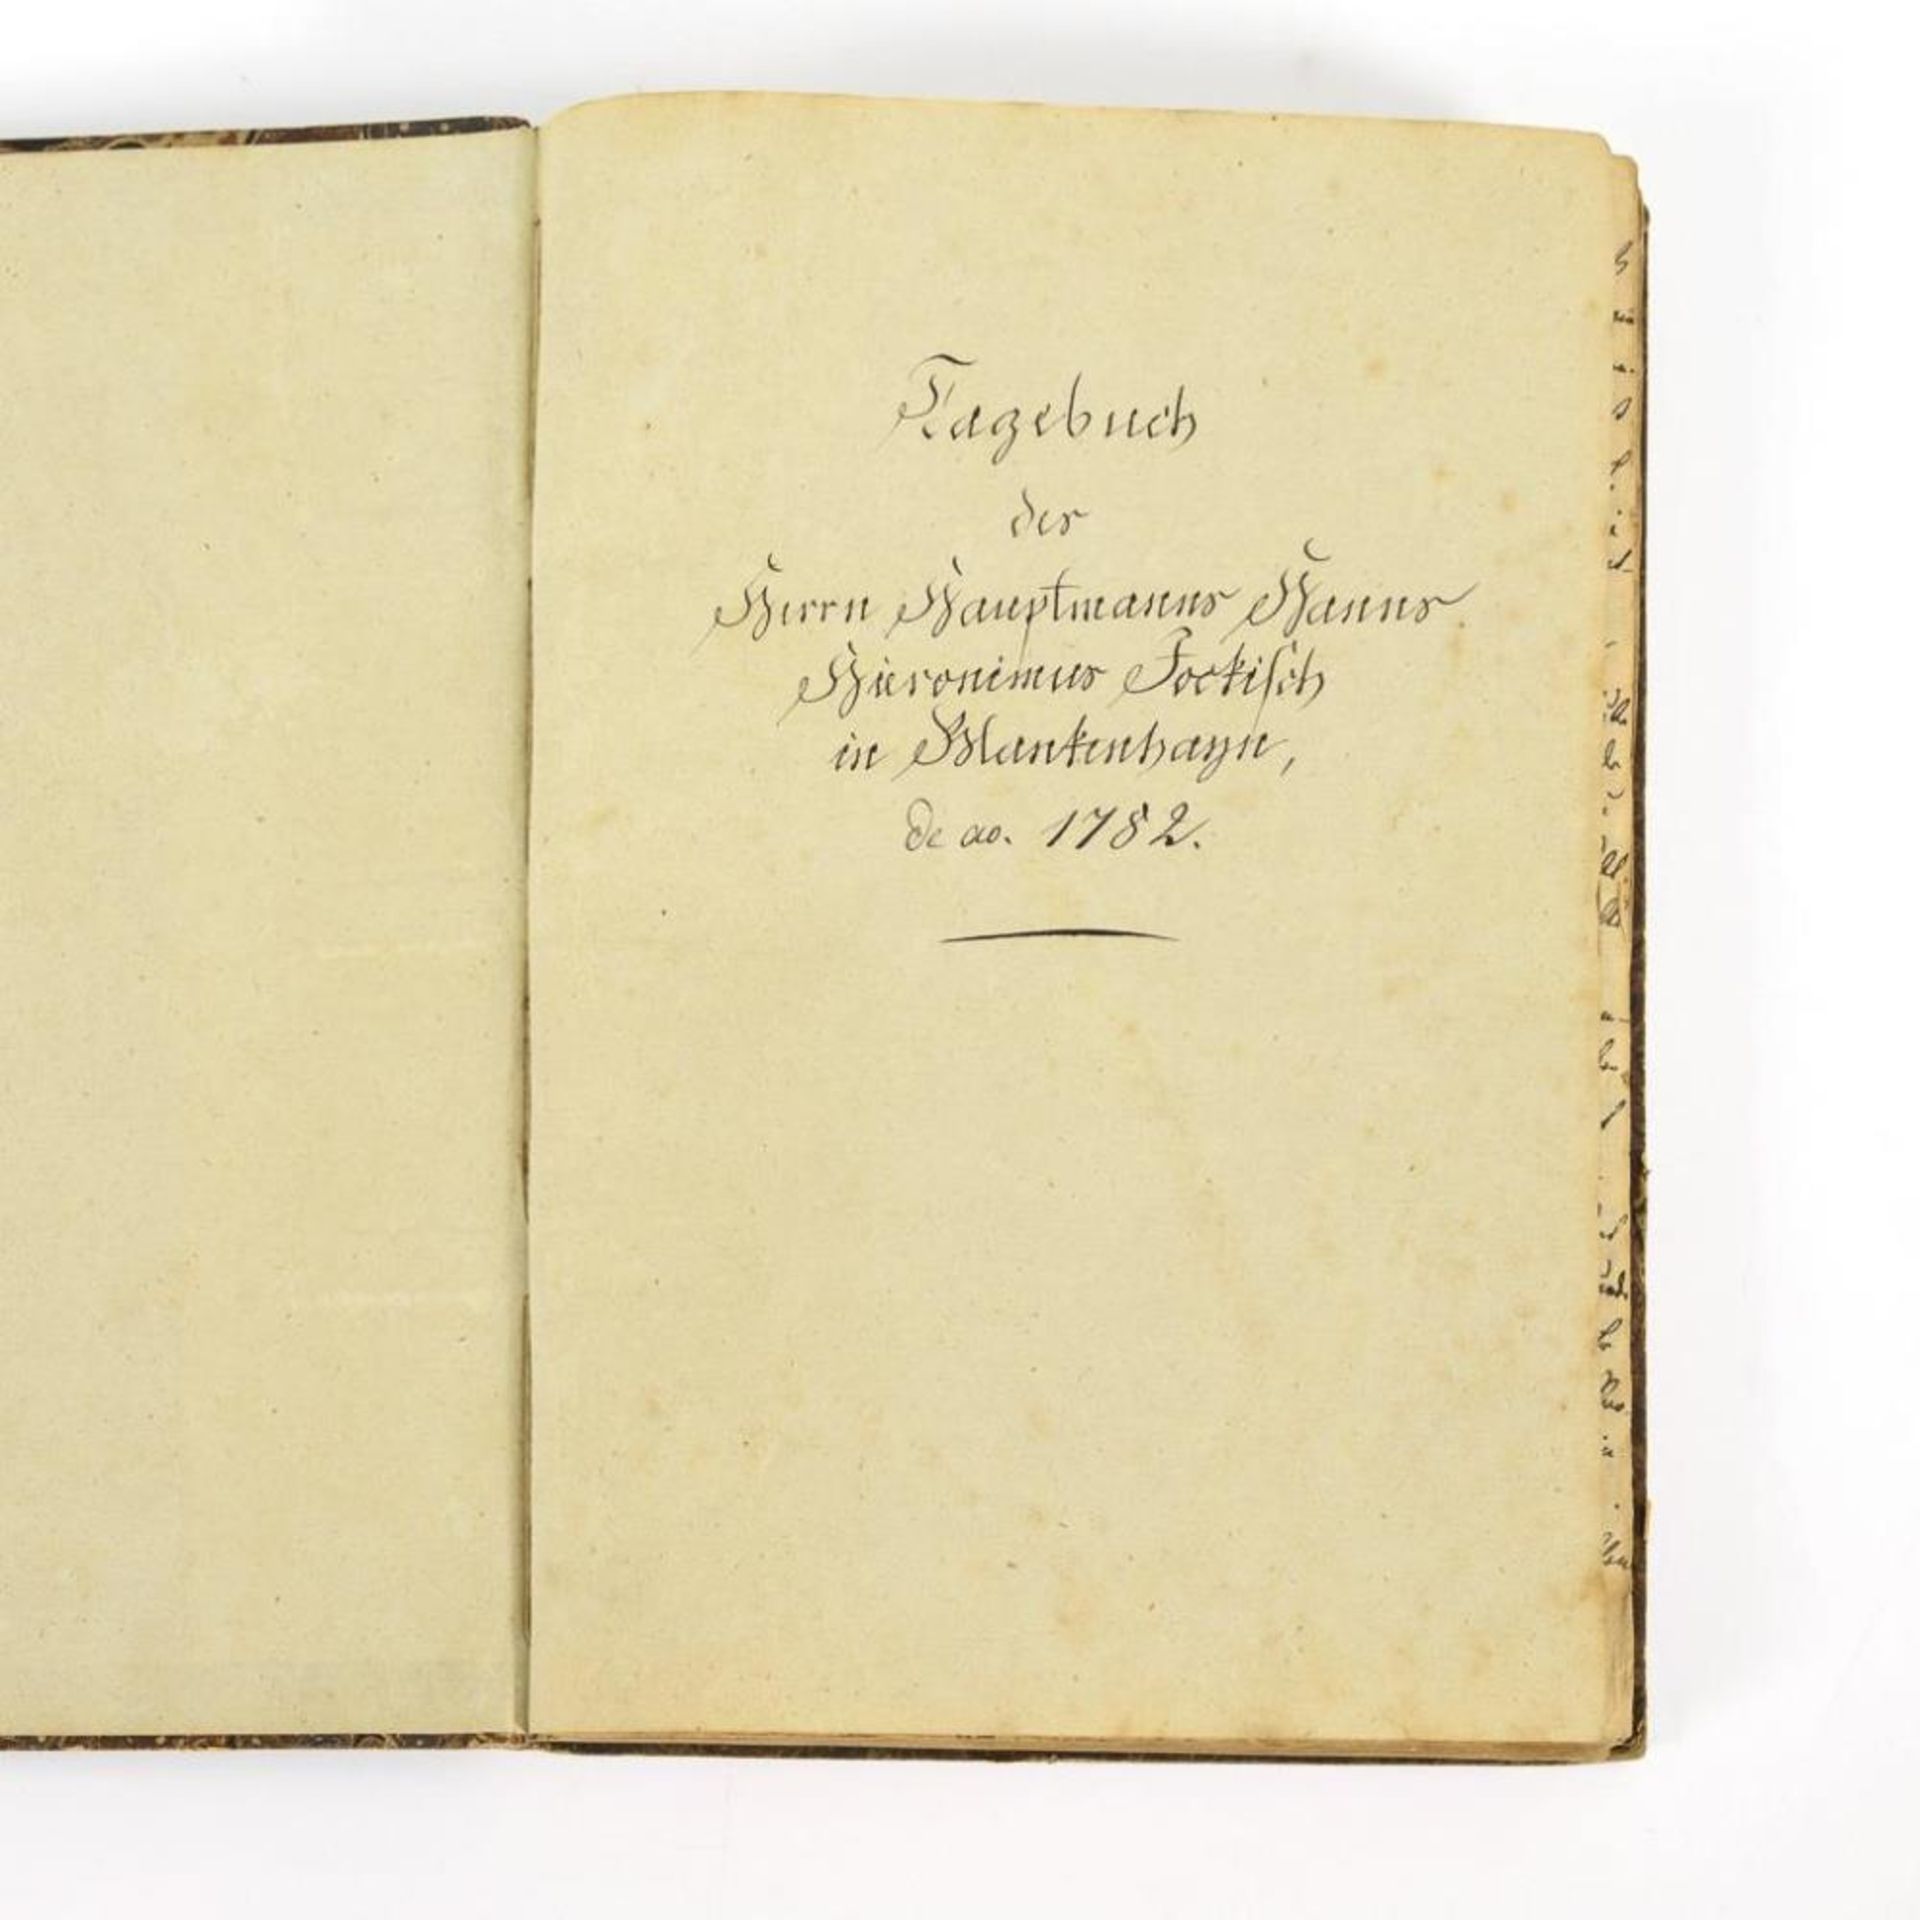 Tagebuch
des
Herrn Hauptmanns Hanns
Hieronimus Jockisch
in Blankenhayn,
de ao. 1782.